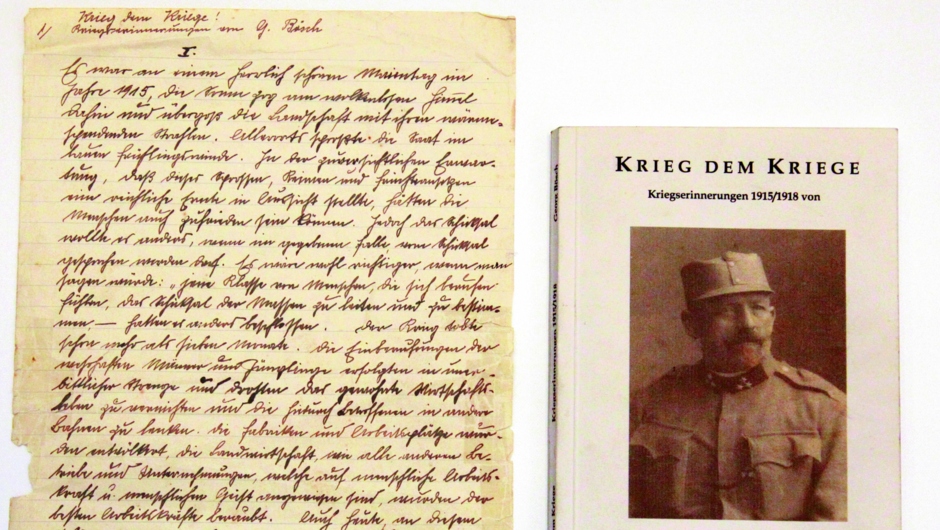 1/ Krieg dem Kriege!
Kriegserinnerungen von G. Bösch
I.
Es war an einem herrlich schönen Maientag im
Jahre 1915, die Sonne zog am wolkenlosen Himmel
dahin und übergoß die Landschaft mit ihren wärme-
spendenden Strahlen. Allerorts sproßte die Saat im
lauen Frühlingswinde. In der zuversichtlichen Erwar-
tung, daß dieses Sprossen, Keimen und Fruchtansetzen
eine reichliche Ernte in Aussicht stellte, hätten die
Menschen auch zufrieden sein können. Jedoch das Schicksal
wollte es anders, wenn im gegebenen Falle vom Schicksal
gesprochen werden darf. Es wäre wohl richtiger, wenn man
sagen würde: „jene Klasse von Menschen, die sich berufen
fühlten, das Schicksal der Massen zu leiten und zu bestim-
men, — hatten es anders beschlossen. Der Krieg tobte
schon mehr als sieben Monate. Die Einberufungen der
wehrhaften Männer und Jünglinge erfolgten in uner-
bittlicher Strenge und drohten das gewohnte Wirtschafts-
leben zu vernichten und die hiedurch Betroffenen in andere
Bahnen zu lenken. Die Fabriken und Arbeitsplätze wur-
den entvölkert, die Landwirtschaft, wie alle anderen Be-
triebe und Unternehmungen, welche auf menschliche Arbeits-
kraft u. menschlichen Geist angewiesen sind, wurden der
besten Arbeitskräfte beraubt. Auch heute, an diesem
KRIEG DEM KRIEGE
Kriegserinnerungen 1915/1918 von
Georg Bösch
Kriegserinnerungen 1915/1918